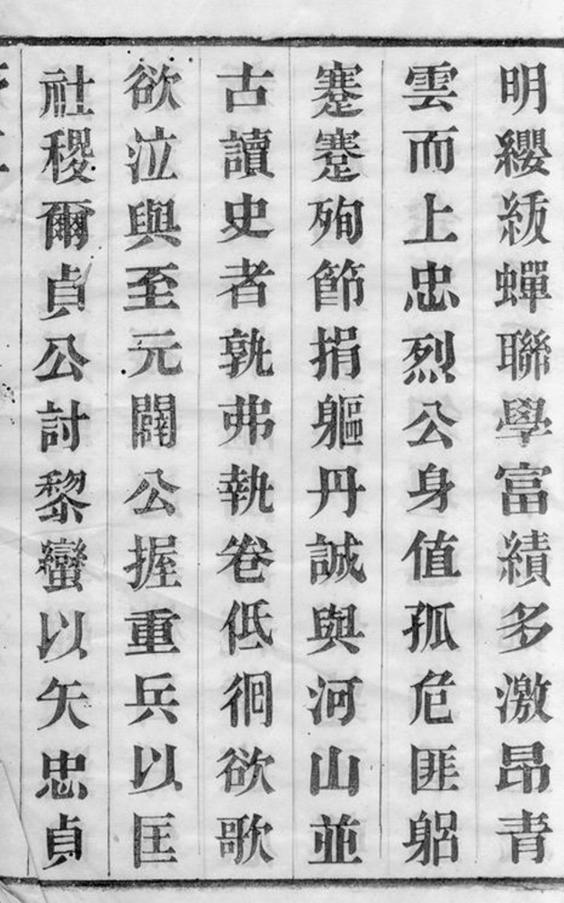 明纓紱蟬聯學富績多激昂青
雲而上忠烈公身值孤危匪躳
蹇蹇殉節捐軀丹誠與河山並
古讀史者孰弗執卷低徊欲歌
欲泣與至元闢公握重兵以匡
社稷爾貞公討黎蠻以矢忠貞